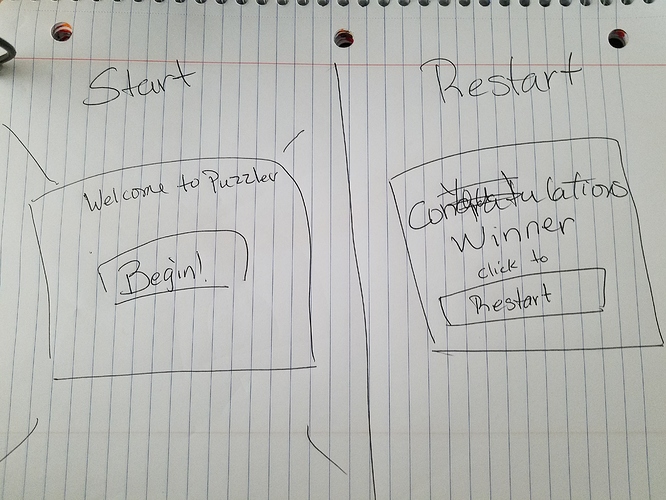 Start
Welcome to Puzzler
Begin!
Restart
Congratulations
Winner
click to
Restart